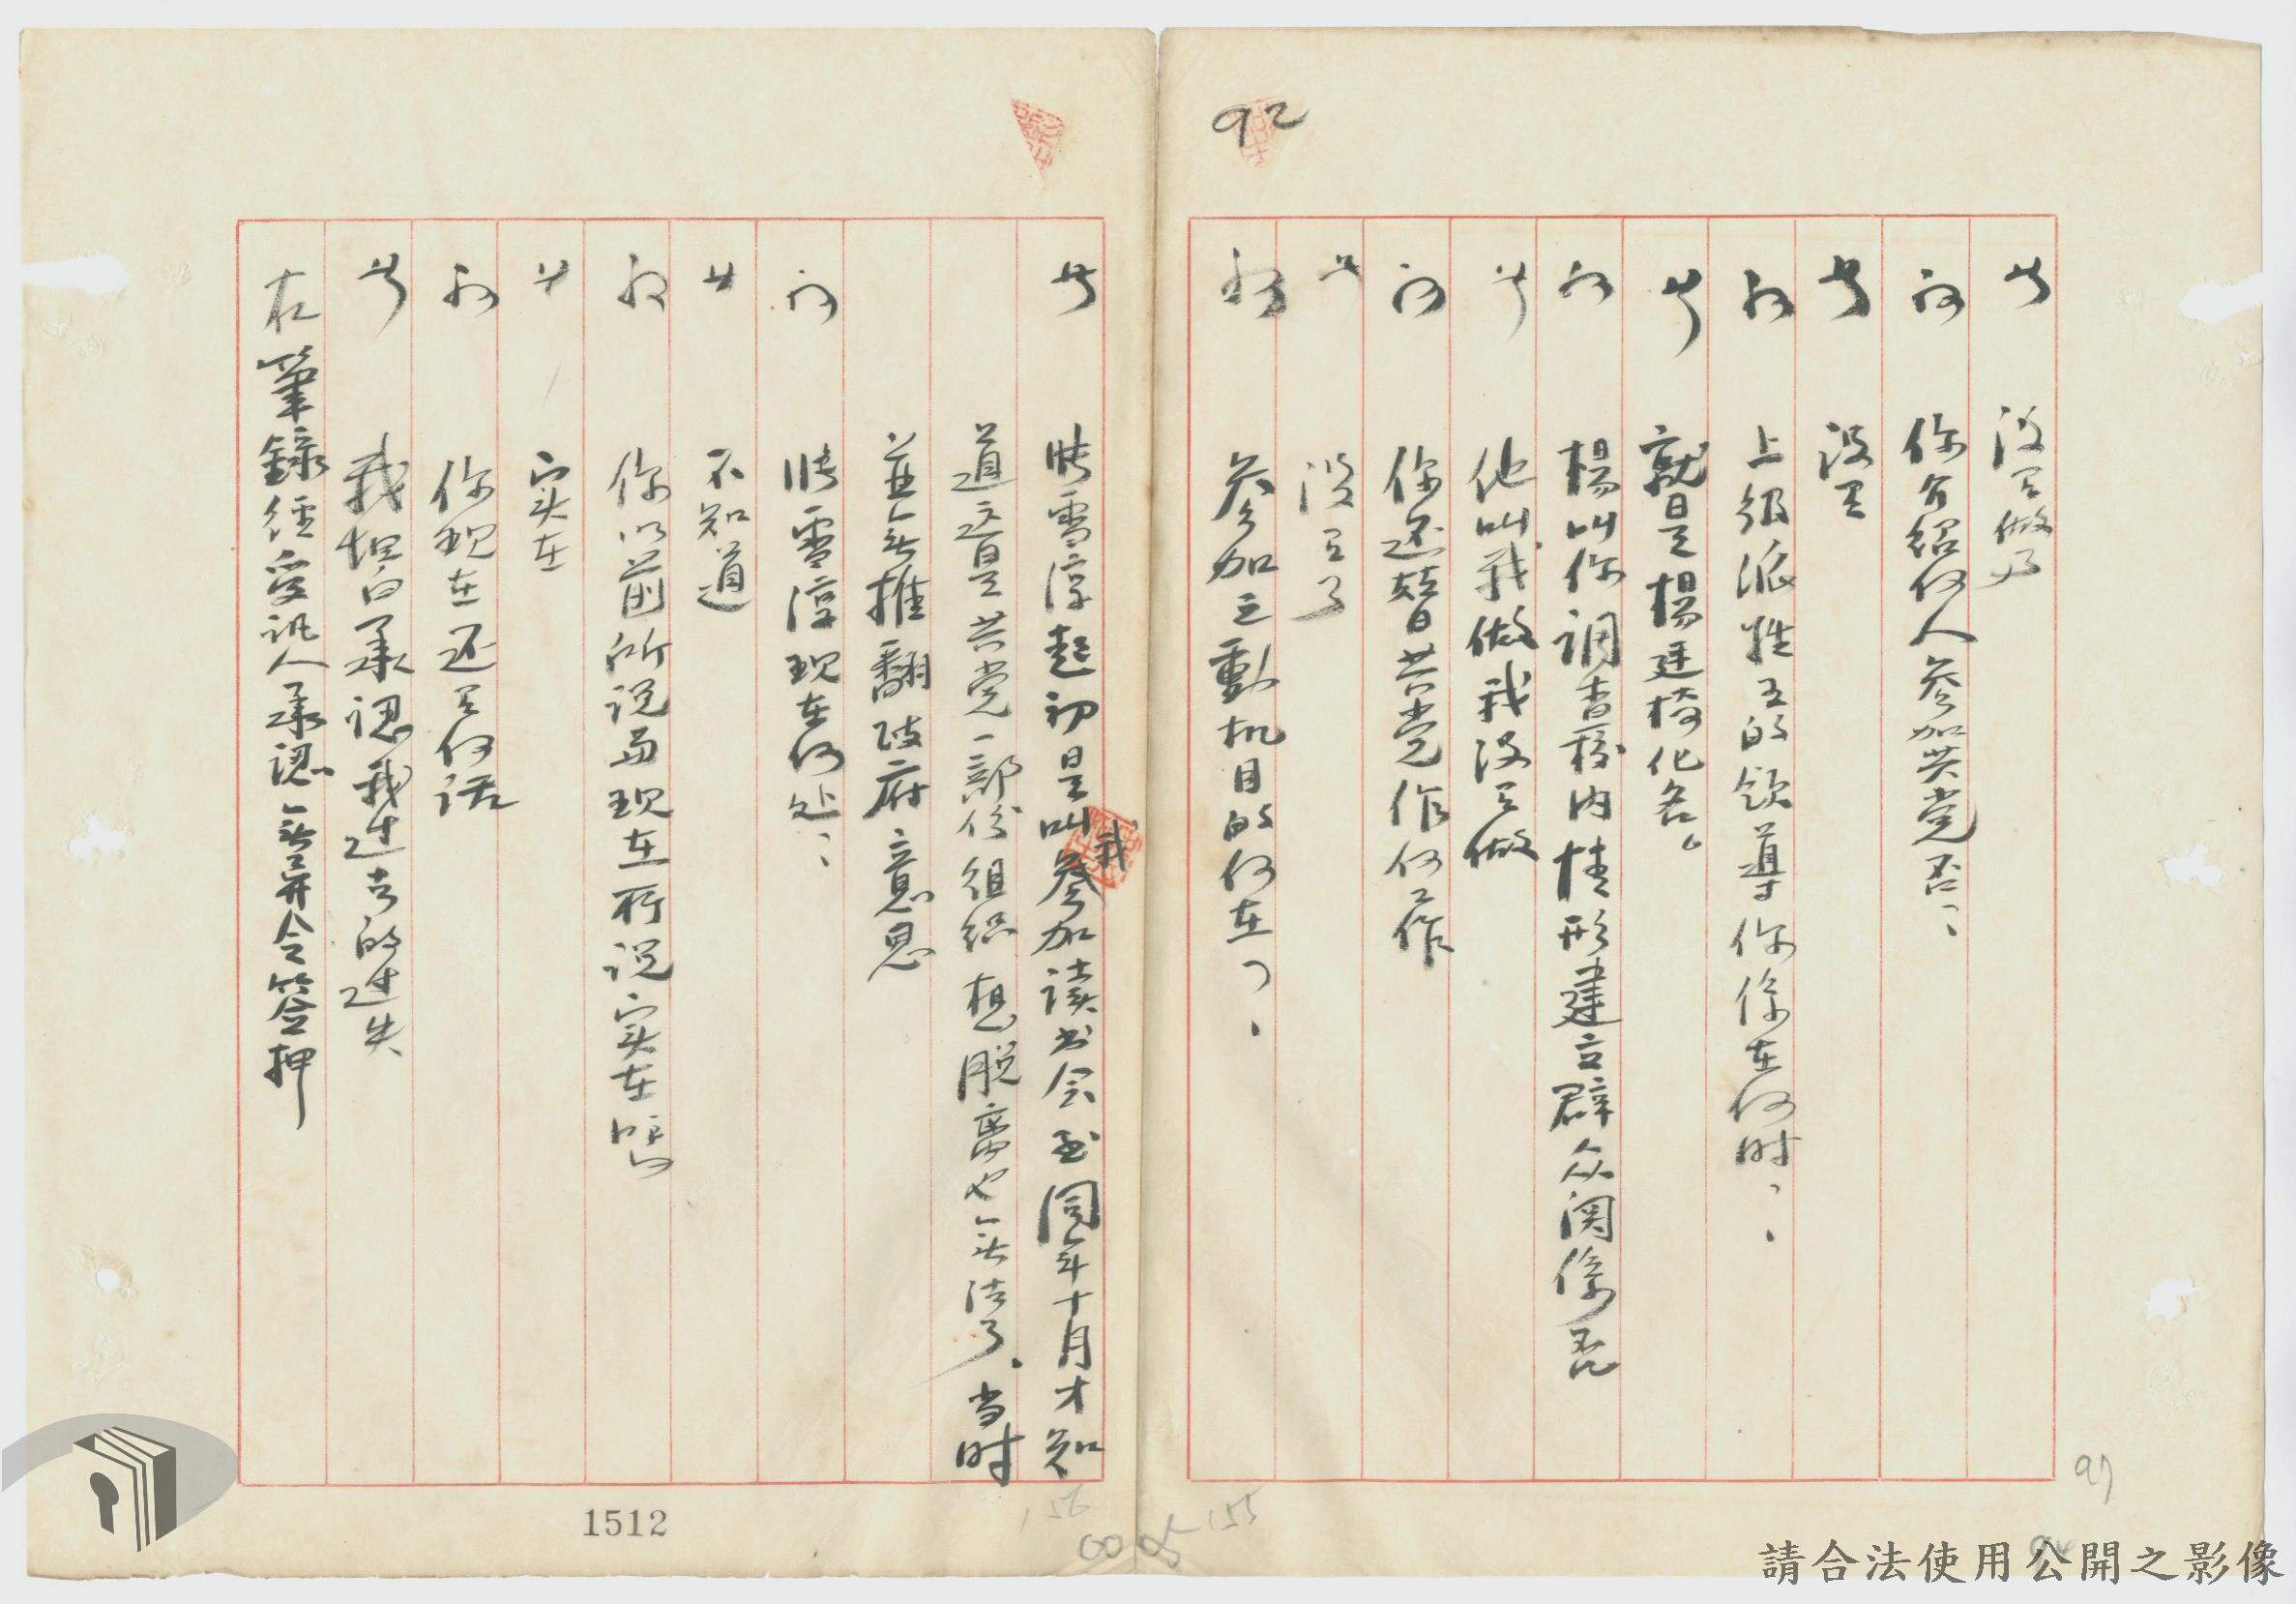 92
答 没有做了
問 你介紹何人參加共党否?
答 没有
問 上級派性五的領導你係在何时?
答 就是楊廷椅化名。
問 楊叫你調查校内情形建立群众関係否
答 他叫我做我没有做
問 你还替共党作何工作
答 没有了
問 參加之動机目的何在?
答 張雪淳起初是叫我參加读书会至同年十月才知
道这是共党一部份组织想脱離也無法了、当时
並無推翻政府意思
問 張雪淳现在何处?
答 不知道
問 你以前所说與现在所说实在嗎
答 实在
問 你现在还有何话
答 我坦白承認我过去的过失
右筆録經受訊人承認無異令簽押
1512
156
155
97
請合法使用公開之影像